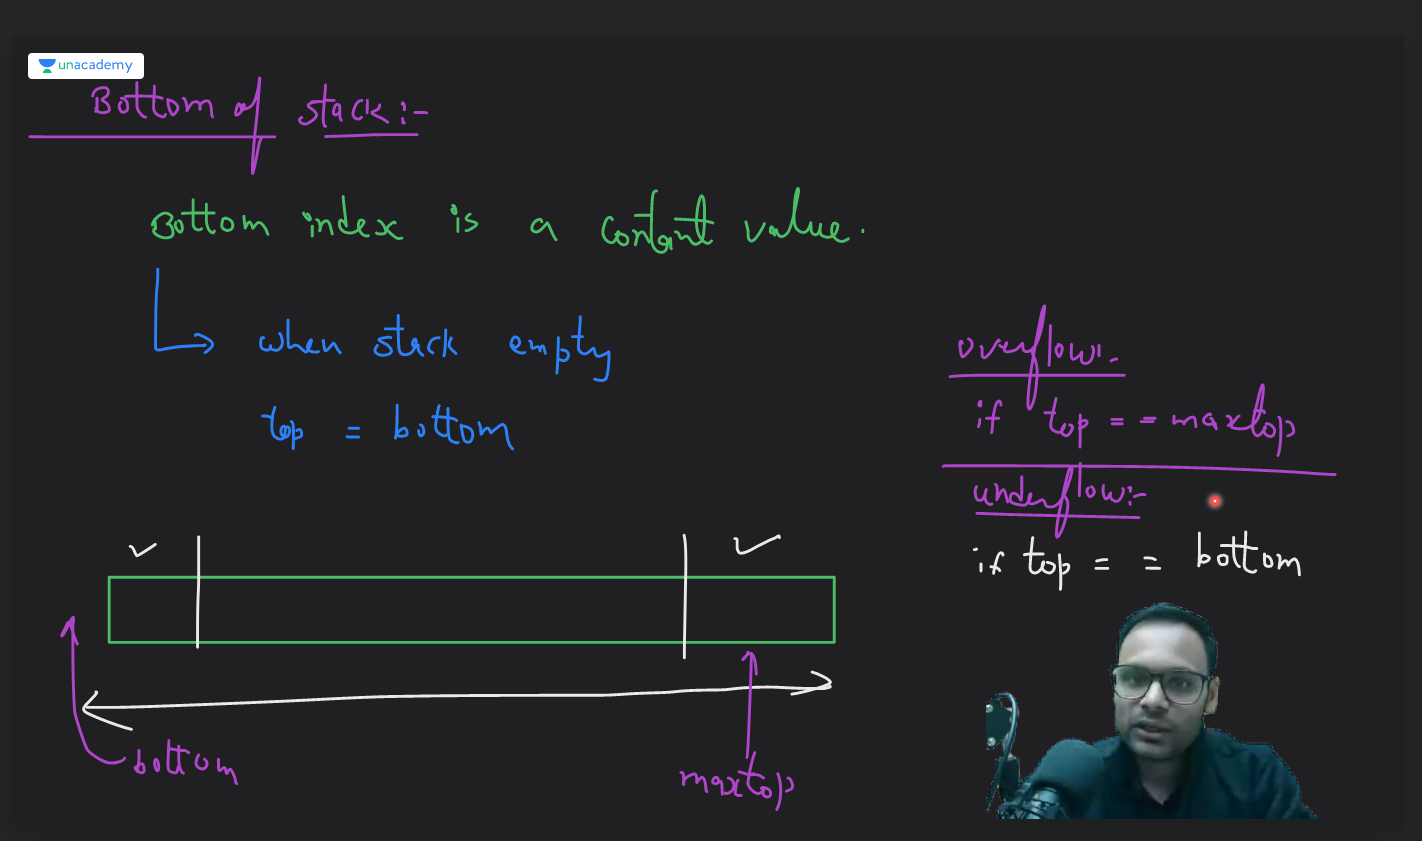 unacademy
Bottom of stack:-
Bottom index is a contant value.
when stack empty
top = bottom
overflow:-
if top == maxtop
underflow:-
if top == bottom
bottom
maxtop